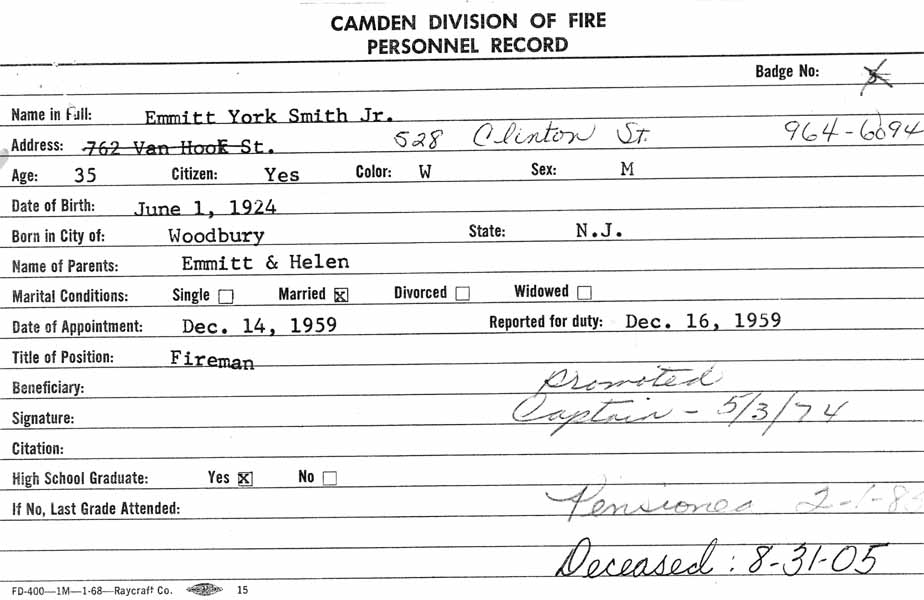 CAMDEN DIVISION OF FIRE
PERSONNEL RECORD
Badge No:
Name in Full: Emmitt York Smith Jr.
Address: 762 Van Hook St. 528 Clinton St. 964-6094
Age: 35 Citizen: Yes Color: W Sex: M
Date of Birth: June 1, 1924
Born in City of: Woodbury State: N.J.
Name of Parents: Emmitt & Helen
Marital Conditions: Single Married X Divorced Widowed
Date of Appointment: Dec. 14, 1959 Reported for duty: Dec. 16, 1959
Title of Position: Fireman
Beneficiary: promoted
Signature: Captain - 5/3/74
Citation:
High School Graduate: Yes X No
If No, Last Grade Attended: Pensioned
Deceased: 8-31-05
FD-400—1M—1-68—Raycraft Co. 15